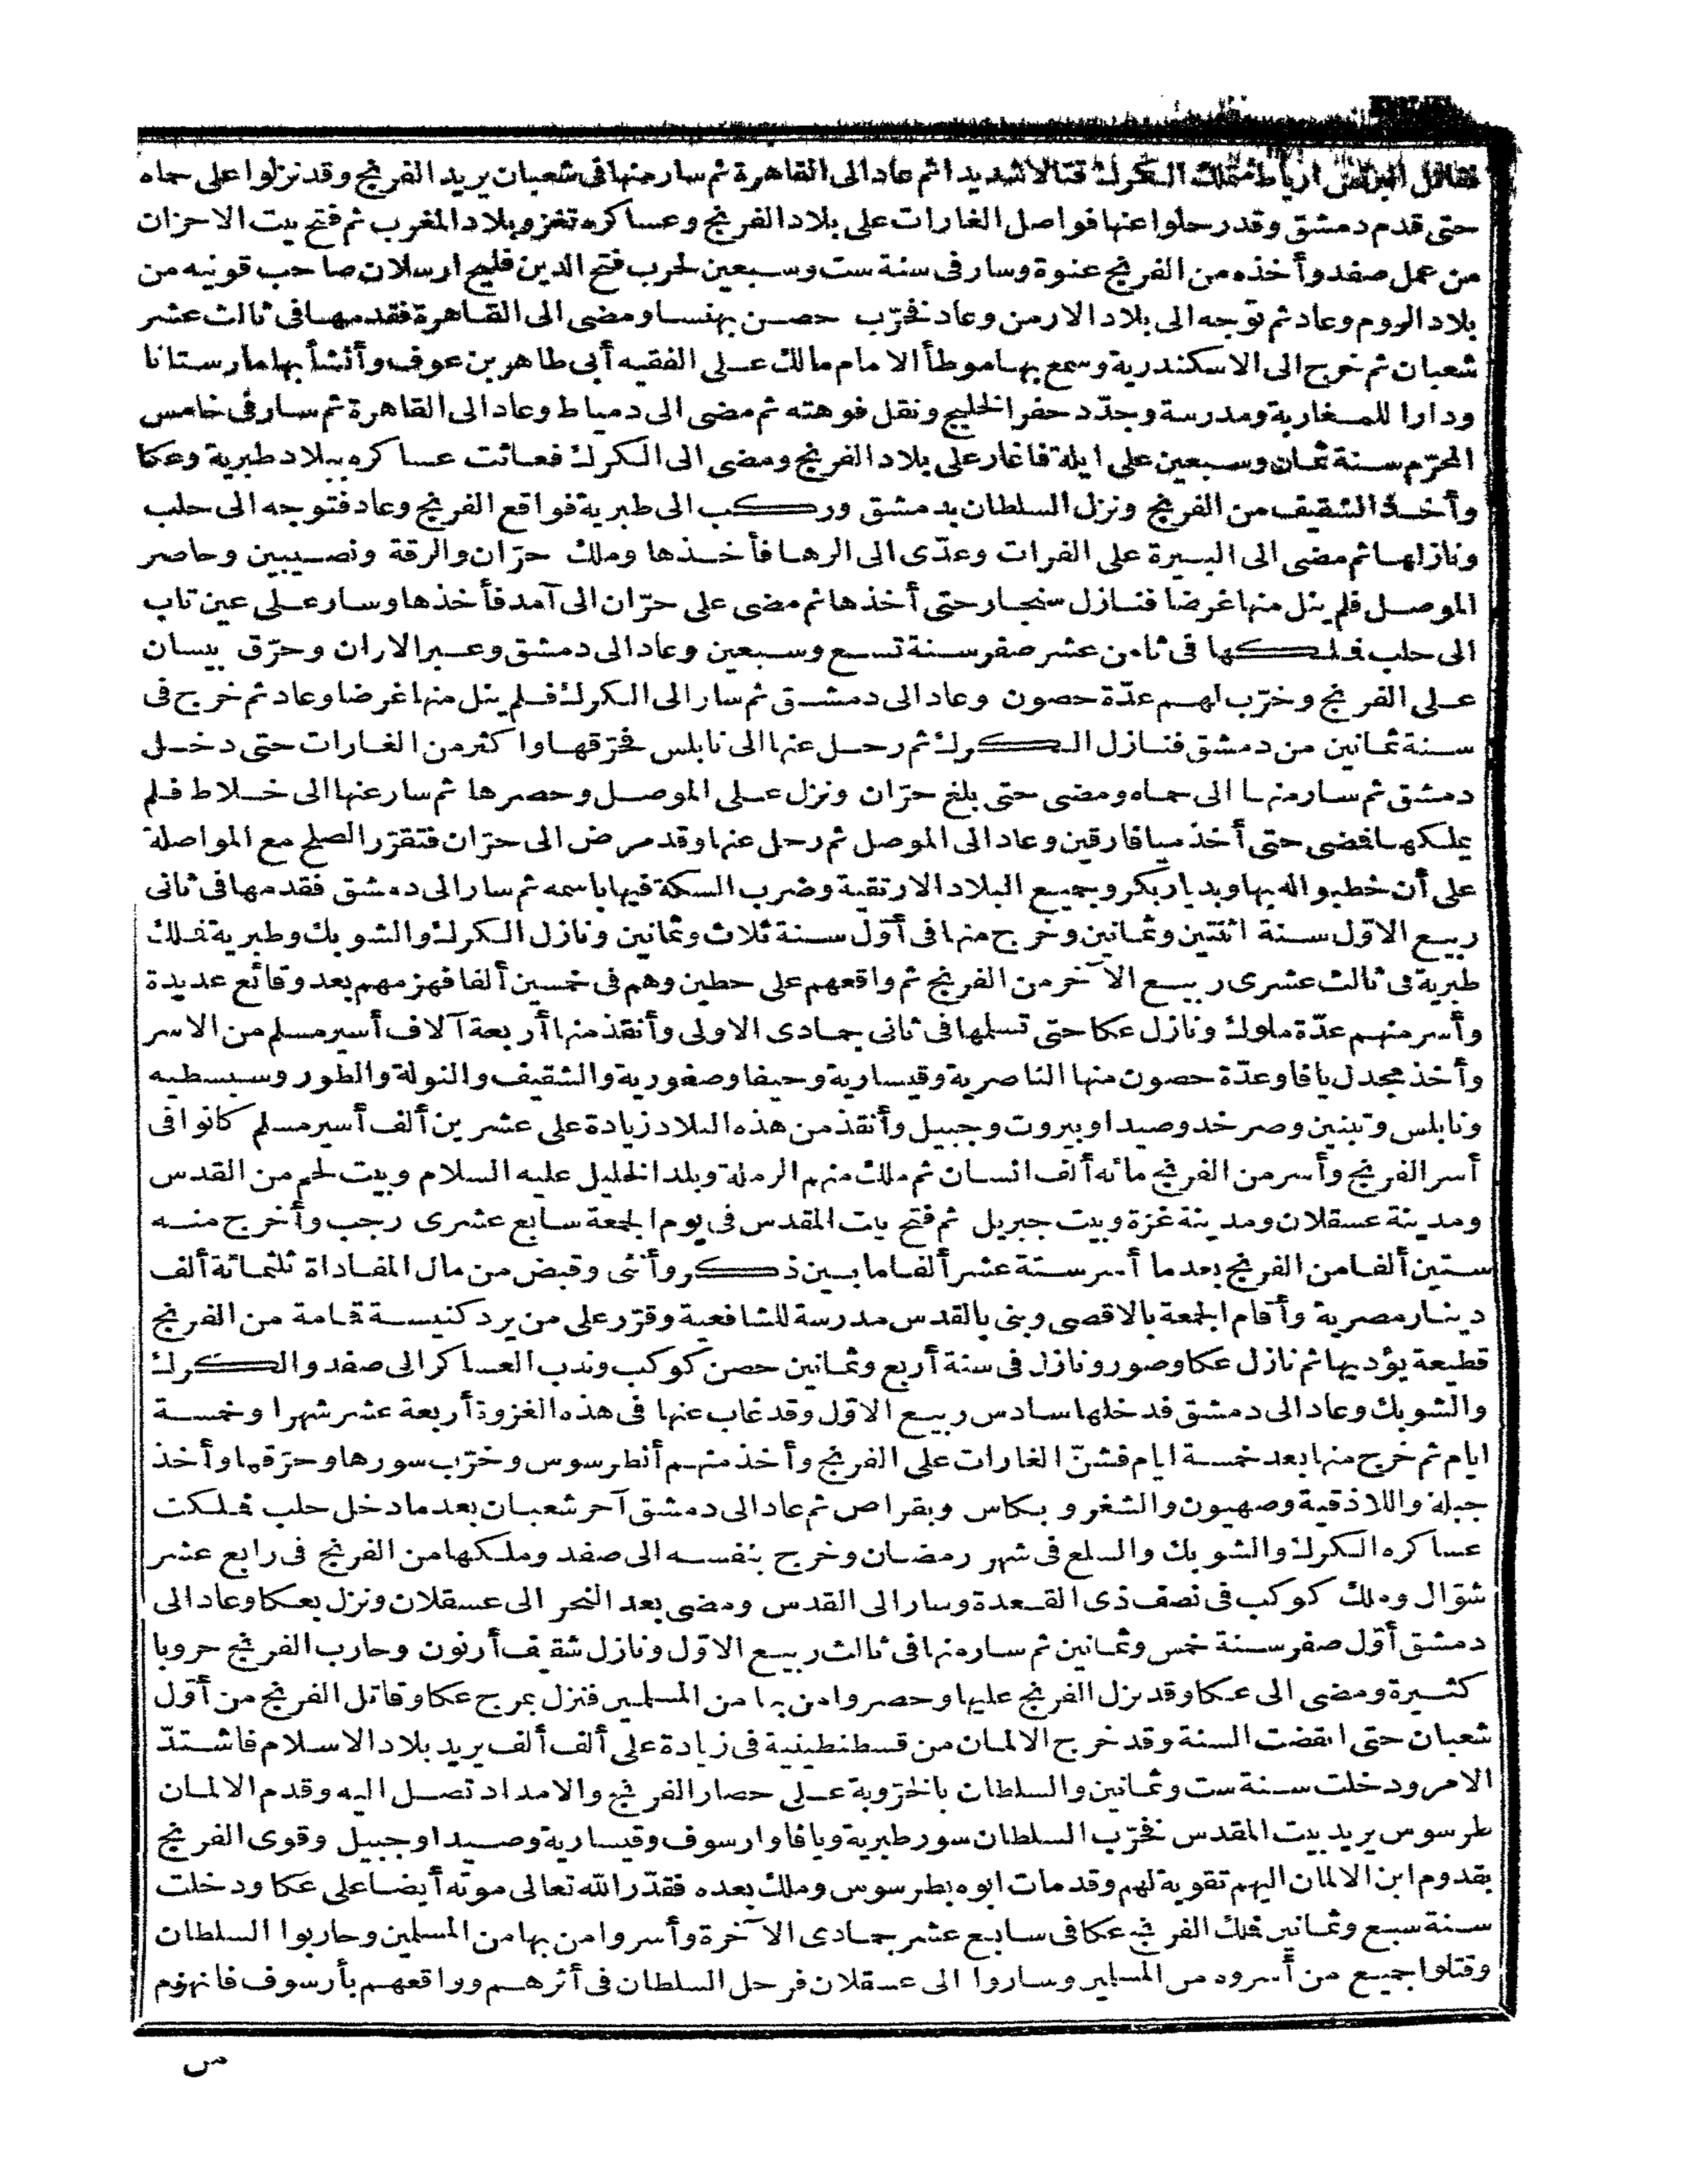 فقاتل البرنس ارياط متملك الكرك قتالا شديدا ثم عاد الى القاهرة ثم سار منها فى شعبان يريد الفرنج وقد نزلوا على حماه
حتى قدم دمشق وقد رحلوا عنها فواصل الغارات على بلاد الفرنج وعساكره تغزو بلاد المغرب ثم فتح بيت الاحزان
من عمل صفد وأخذه من الفرنج عنوة وسار فى سنة ست وسبعين لحرب فتح الدين قليج ارسلان صاحب قونيه من
بلاد الروم وعاد ثم توجه الى بلاد الارمن وعاد فخرّب حصن بهنسا ومضى الى القاهرة فقدمها فى ثالث عشر
شعبان ثم خرج الى الاسكندرية وسمع بها موطأ الامام مالك على الفقيه أبى طاهر بن عوف وأنشأ بها مارستانا
ودارا للمغاربة ومدرسة وجدّد حفر الخليج ونقل فوهته ثم مضى الى دمياط وعاد الى القاهرة ثم سار فى خامس
المحرّم سنة ثمان وسبعين على ايلة فاغار على بلاد الفرنج ومضى الى الكرك فعاثت عساكره ببلاد طبرية وعكا
وأخذ الشقيف من الفرنج ونزل السلطان بدمشق وركب الى طبرية فواقع الفرنج وعاد فتوجه الى حلب
ونازلها ثم مضى الى البيرة على الفرات وعدّى الى الرها فأخذها وملك حرّان والرقة ونصيبين وحاصر
الموصل فلم ينل منها غرضا فنازل سنجار حتى أخذها ثم مضى على حرّان الى آمد فأخذها وسار على عين تاب
الى حلب فملكها فى ثامن عشر صفر سنة تسع وسبعين وعاد الى دمشق وعبر الاران وحرّق بيسان
على الفرنج وخرّب لهم عدّة حصون وعاد الى دمشق ثم سار الى الكرك فلم ينل منها غرضا وعاد ثم خرج فى
سنة ثمانين من دمشق فنازل الكرك ثم رحل عنها الى نابلس فحرّقها واكثر من الغارات حتى دخل
دمشق ثم سار منها الى حماه ومضى حتى بلغ حرّان ونزل على الموصل وحصرها ثم سار عنها الى خلاط فلم
يملكها فمضى حتى أخذ ميافارقين وعاد الى الموصل ثم رحل عنها وقد مرض الى حرّان فتقرّر الصلح مع المواصلة
على أن خطبوا له بها وبديار بكر وجميع البلاد الارتقية وضرب السكة فيها باسمه ثم سار الى دمشق فقدمها فى ثانى
ربيع الاوّل سنة اثنتين وثمانين وخرج منها فى أوّل سنة ثلاث وثمانين ونازل الكرك والشوبك وطبرية فملك
طبرية فى ثالث عشرى ربيع الآخر من الفرنج ثم واقعهم على حطين وهم فى خمسين ألفا فهزمهم بعد وقائع عديدة
وأسر منهم عدّة ملوك ونازل عكا حتى تسلمها فى ثانى جمادى الاولى وأنقذ منها أربعة آلاف أسير مسلم من الاسر
وأخذ مجدل يافا وعدّة حصون منها الناصرية وقيسارية وحيفا وصفورية والشقيف والنولة والطور وسبسطيه
ونابلس وتبنين وصرخد وصيدا وبيروت وجبيل وأنقذ من هذه البلاد زيادة على عشرين ألف أسير مسلم كانوا فى
أسر الفرنج وأسر من الفرنج مائه ألف انسان ثم ملك منهم الرملة وبلد الخليل عليه السلام وبيت لحم من القدس
ومدينة عسقلان ومدينة غزة وبيت جبريل ثم فتح بيت المقدس فى يوم الجمعة سابع عشرى رجب وأخرج منه
ستين ألفا من الفرنج بعدما أسر ستة عشر ألفا ما بين ذكر وأنثى وقبض من مال المفاداة ثلثمائة ألف
دينار مصرية وأقام الجمعة بالاقصى وبنى بالقدس مدرسة للشافعية وقرّر على من يرد كنيسة قمامة من الفرنج
قطيعة يؤديها ثم نازل عكا وصور ونازل فى سنة أربع وثمانين حصن كوكب وندب العساكر الى صفد والكرك
والشوبك وعاد الى دمشق فدخلها سادس ربيع الاوّل وقد غاب عنها فى هذه الغزوة أربعة عشر شهرا وخمسة
ايام ثم خرج منها بعد خمسة ايام فشنّ الغارات على الفرنج وأخذ منهم أنطرسوس وخرّب سورها وحرّقها وأخذ
جبلة واللاذقية وصهيون والشغر وبكاس وبقراص ثم عاد الى دمشق آخر شعبان بعد ما دخل حلب فملكت
عساكره الكرك والشوبك والسلع فى شهر رمضان وخرج بنفسه الى صفد وملكها من الفرنج فى رابع عشر
شوّال وملك كوكب فى نصف ذى القعدة وسار الى القدس ومضى بعد النحر الى عسقلان ونزل بعكا وعاد الى
دمشق أوّل صفر سنة خمس وثمانين ثم سار منها فى ثالث ربيع الاوّل ونازل شقيف أرنون وحارب الفرنج حروبا
كثيرة ومضى الى عكا وقد نزل الفرنج عليها وحصروا من بها من المسلمين فنزل بمرج عكا وقاتل الفرنج من أوّل
شعبان حتى انقضت السنة وقد خرج الالمان من قسطنطينية فى زيادة على ألف ألف يريد بلاد الاسلام فاشتدّ
الامر ودخلت سنة ست وثمانين والسلطان بالخرّوبة على حصار الفرنج والامداد تصل اليه وقدم الالمان
طرسوس يريد بيت المقدس فخرّب السلطان سور طبرية ويافا وارسوف وقيسارية وصيدا وجبيل وقوى الفرنج
بقدوم ابن الالمان اليهم تقوية لهم وقد مات ابوه بطرسوس وملك بعده فقدّر الله تعالى موته أيضا على عكا ودخلت
سنة سبع وثمانين فملك الفرنج عكا فى سابع عشر جمادى الآخرة وأسروا من بها من المسلمين وحاربوا السلطان
وقتلوا جميع من أسروه من المسلمين وساروا الى عسقلان فرحل السلطان فى أثرهم وواقعهم بأرسوف فانهزم
من